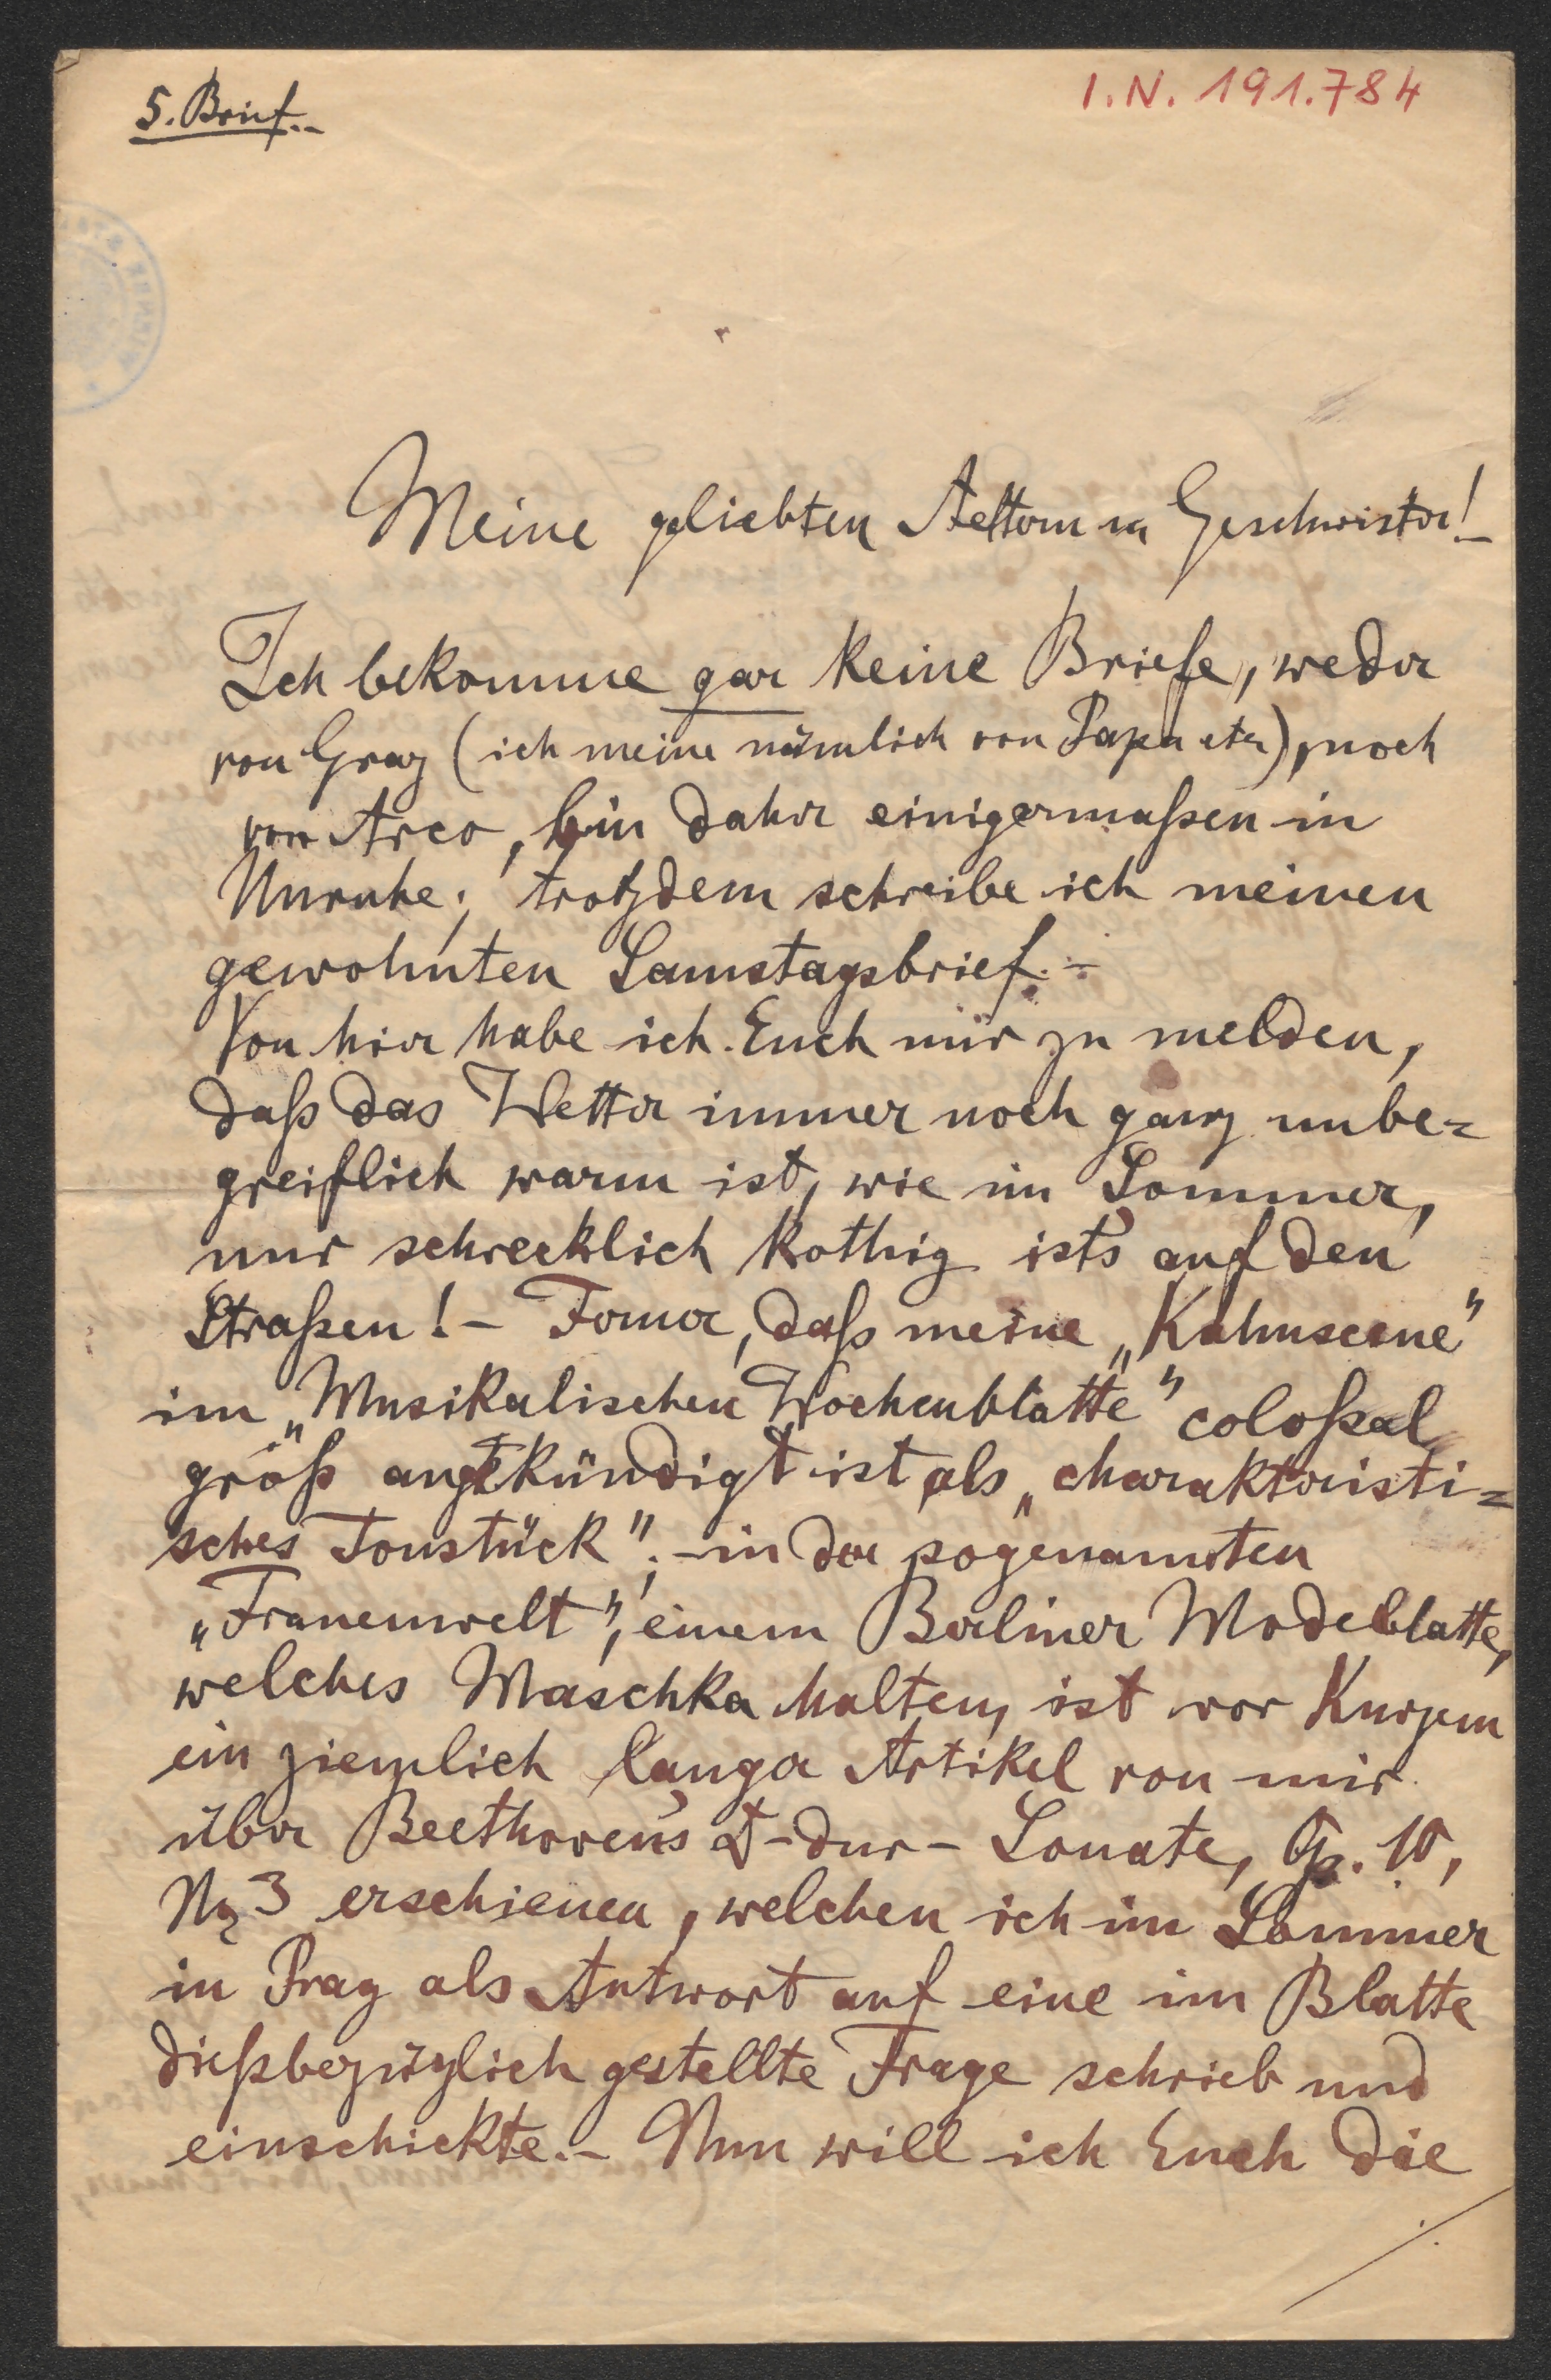 5. Brief.-
I.N. 191.784
Meine geliebten Aeltern u Geschwister!-
Ich bekomme gar keine Briefe, weder
von Graz (ich meine nämlich von Papa etc), noch
von Arco, bin daher einigermaßen in
Unruhe; trotzdem schreibe ich meinen
gewohnten Samstagsbrief.-
Von hier habe ich Euch nur zu melden,
daß das Wetter immer noch ganz unbe=
greiflich warm ist, wie im Sommer,
nur schrecklich kothig ists auf den
Straßen! - Ferner, daß meine „Kahnscene"
im „Musikalischen Wochenblatte" coloßal
groß angekündigt ist als „charakteristi=
sches Tonstück"; - in der sogenannten
„Frauenwelt", einem Berliner Modeblatte,
welches Maschka halten, ist vor Kurzem
ein ziemlich langer Artikel von mir
über Beethovens D-dur-Sonate, Op. 10,
No 3 erschienen, welchen ich im Sommer
in Prag als Antwort auf eine im Blatte
dießbezüglich gestellte Frage schrieb und
einschickte.- Nun will ich Euch die
./.